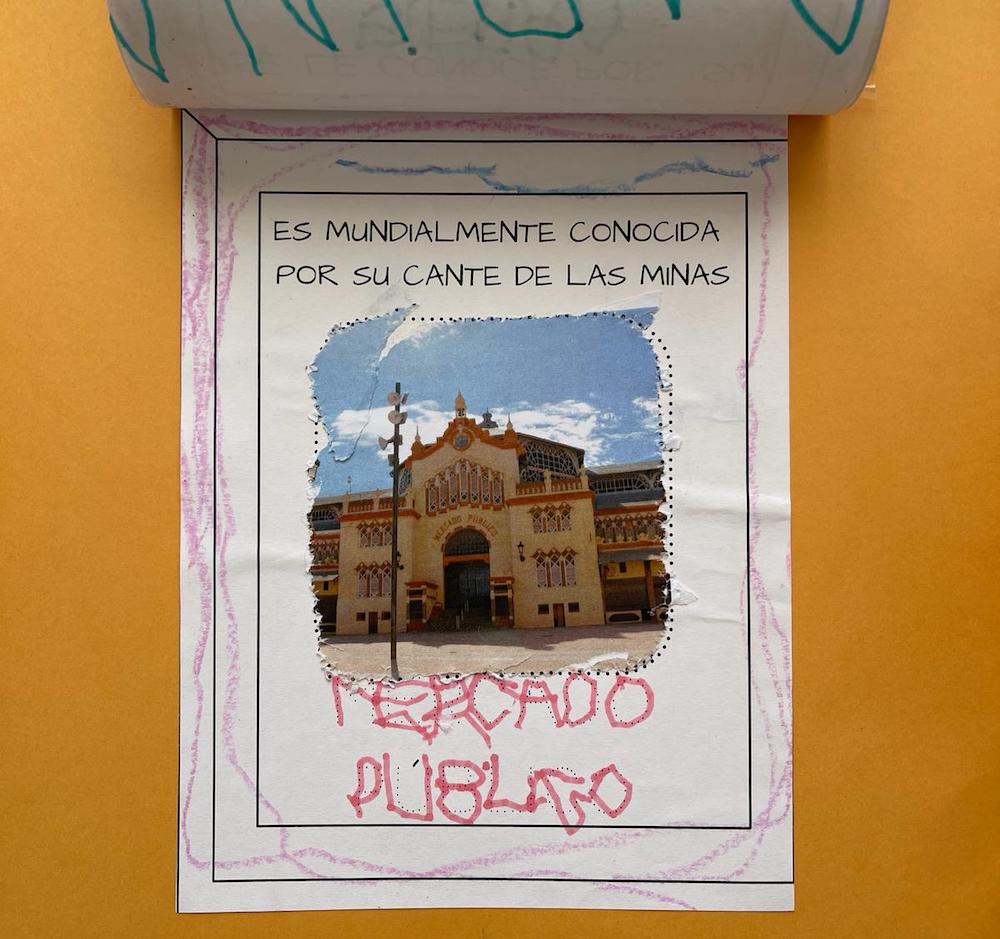 ES MUNDIALMENTE CONOCIDA
POR SU CANTE DE LAS MINAS
MERCADO PUBLICO
MERCADO
PÚBLICO